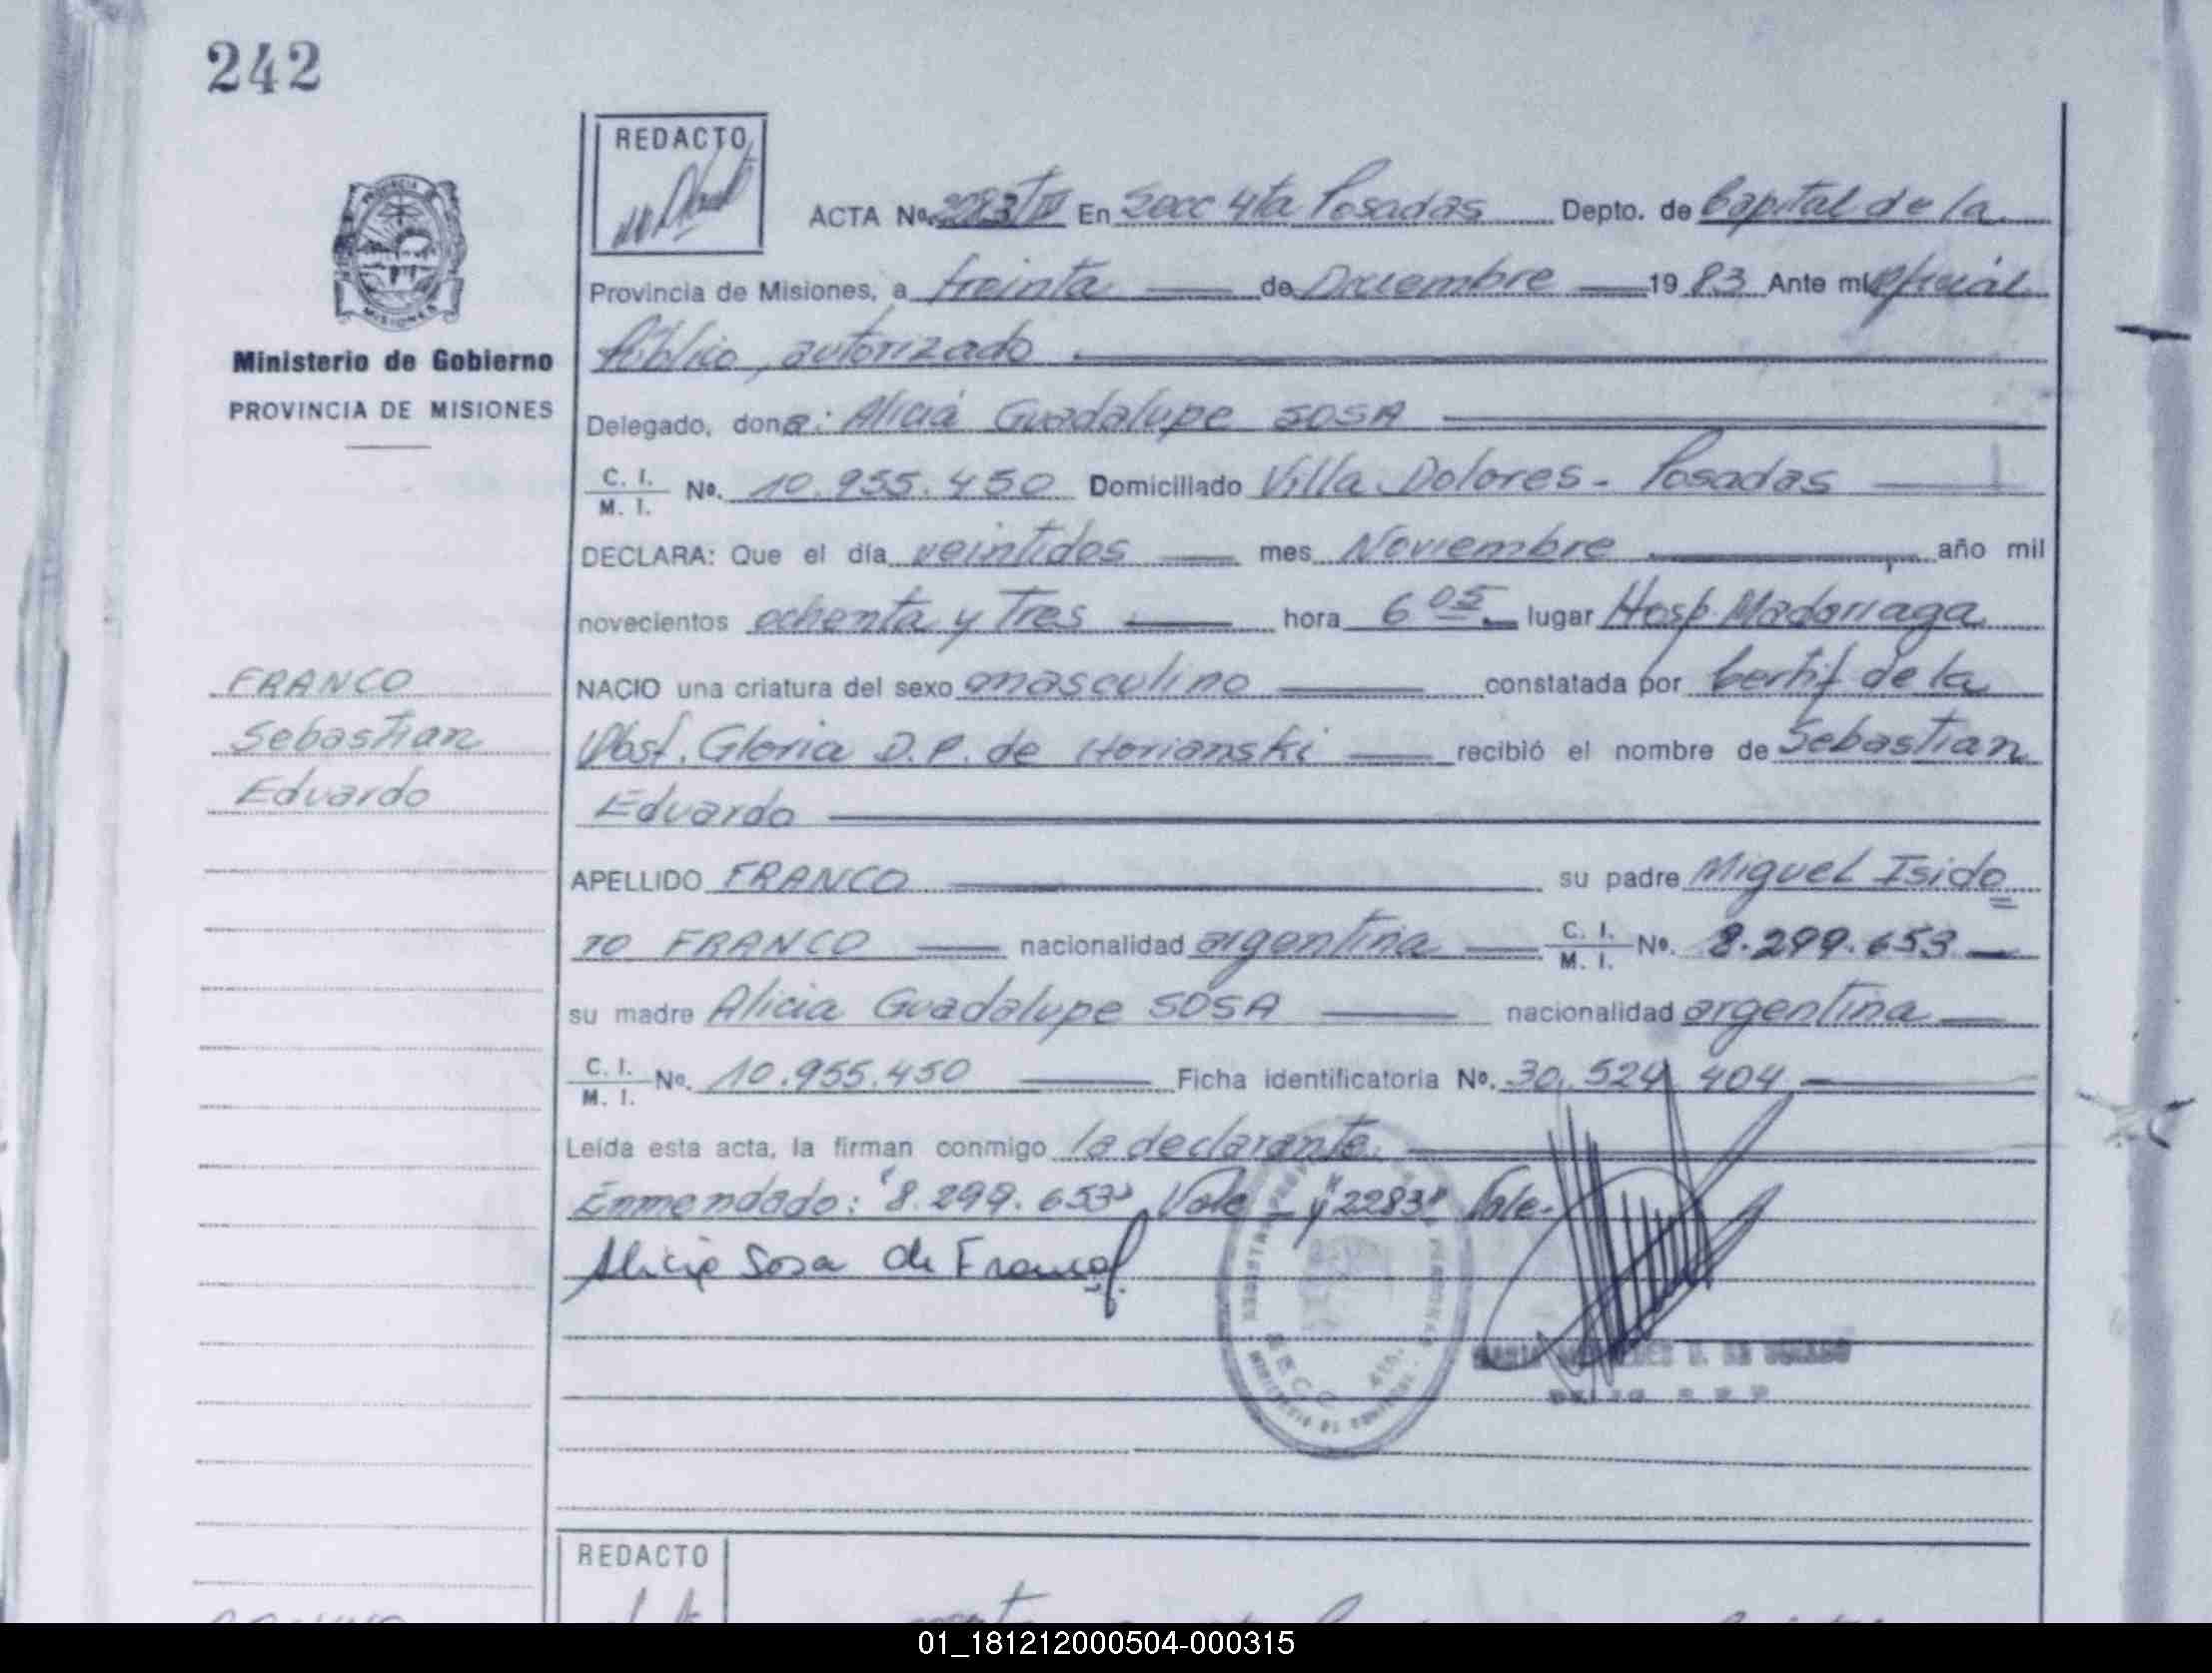 242
REDACTO
ACTA No. 2283/IV En Secc 4ta Posadas Depto. de Capital de la
Provincia de Misiones, a treinta de Diciembre 1983 Ante mi oficial
Público, autorizado
Ministerio de Gobierno
PROVINCIA DE MISIONES
Delegado, dona: Alicia Guadalupe SOSA
C. I.
M. I. No. 10.955.450 Domiciliado Villa Dolores - Posadas
DECLARA: Que el día veintidos mes Noviembre año mil
novecientos ochenta y Tres hora 6 05 lugar Hosp. Madariaga
FRANCO
Sebastian
Eduardo
NACIO una criatura del sexo masculino constatada por Certif de la
Obst. Gloria D.P. de Horianski recibió el nombre de Sebastian
Eduardo
APELLIDO FRANCO su padre Miguel Isido
ro FRANCO nacionalidad argentina C. I. M. I. No. 8.299.653
su madre Alicia Guadalupe SOSA nacionalidad argentina
C. I.
M. I. No. 10.955.450 Ficha identificatoria No. 30.524 404
Leída esta acta, la firman conmigo la declarante.
Enmendado: "8.299.653" Vale - y "2283" Vale-
Alicia Sosa de Franco
REDACTO
01_181212000504-000315